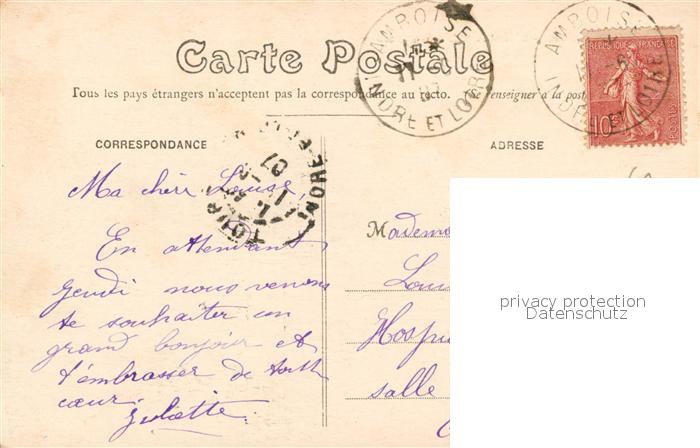 Carte Postale
Tous les pays étrangers n'acceptent pas la correspondance au recto. (Se renseigner à la poste
CORRESPONDANCE
ADRESSE
AMBOISE
INDRE ET LOIRE
AMBOISE
INDRE ET LOIRE
REPUBLIQUE FRANÇAISE
10
POSTES
07
Ma chère Louise,
En attendant
jeudi nous venons
te souhaiter un
grand bonjour et
t'embrasser de tout
cœur.
Juliette.
Mademo
Lou
Hosp
salle
privacy protection
Datenschutz